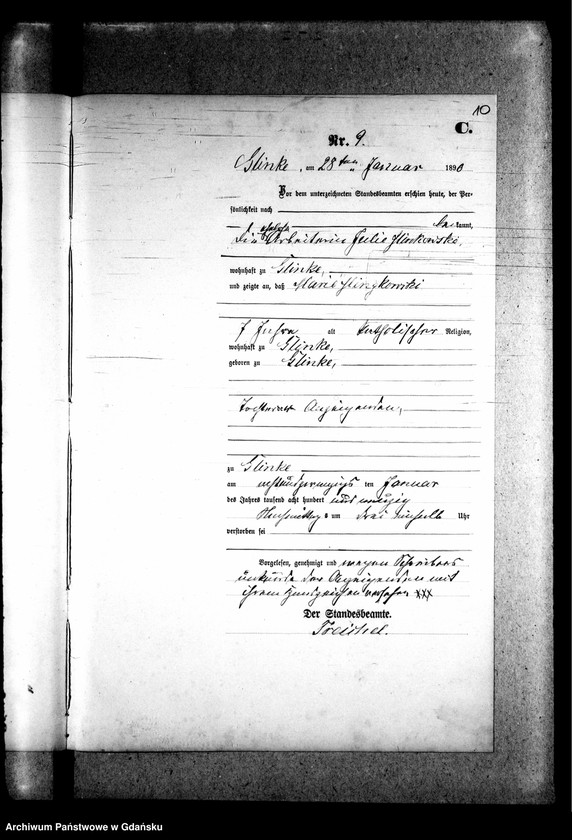 10
C.
Nr. 9.
Glinke, am 28ten Januar 1890
Vor dem unterzeichneten Standesbeamten erschien heute, der Per-
sönlichkeit nach
kannt,
die Arbeiterin Julie
wohnhaft zu Glinke,
und zeigte an, daß Marie
7 Jahre alt katholischer Religion,
wohnhaft zu Glinke,
geboren zu Glinke,
Tochter der Anzeigenden,
zu Glinke
am ten Januar
des Jahres tausend acht hundert und neunzig
Nachmittags um drei einhalb Uhr
verstorben sei
Vorgelesen, genehmigt und wegen Schreibens
unkunde der Anzeigenden mit
ihrem Handzeichen versehen XXX
Der Standesbeamte.
Treichel.
Archiwum Państwowe w Gdańsku